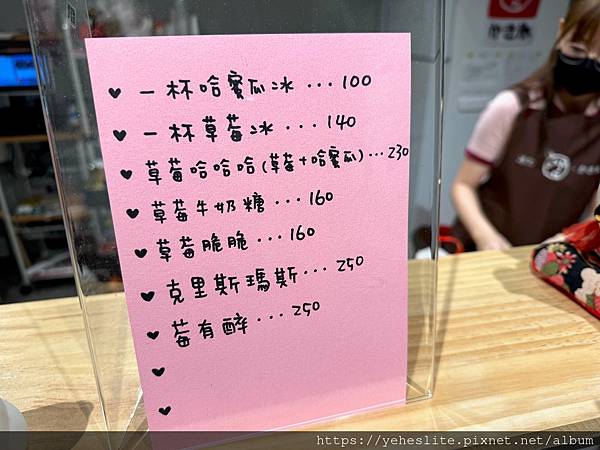 ♥ 一杯哈蜜瓜冰 ... 100
♥ 一杯草莓冰 ... 140
♥ 草莓哈哈哈(草莓+哈蜜瓜)...230
♥ 草莓牛奶糖 ... 160
♥ 草莓脆脆 ... 160
♥ 克里斯瑪斯 ... 250
♥ 莓有醉 ... 250
♥
♥
https://yeheslite.pixnet.net/album